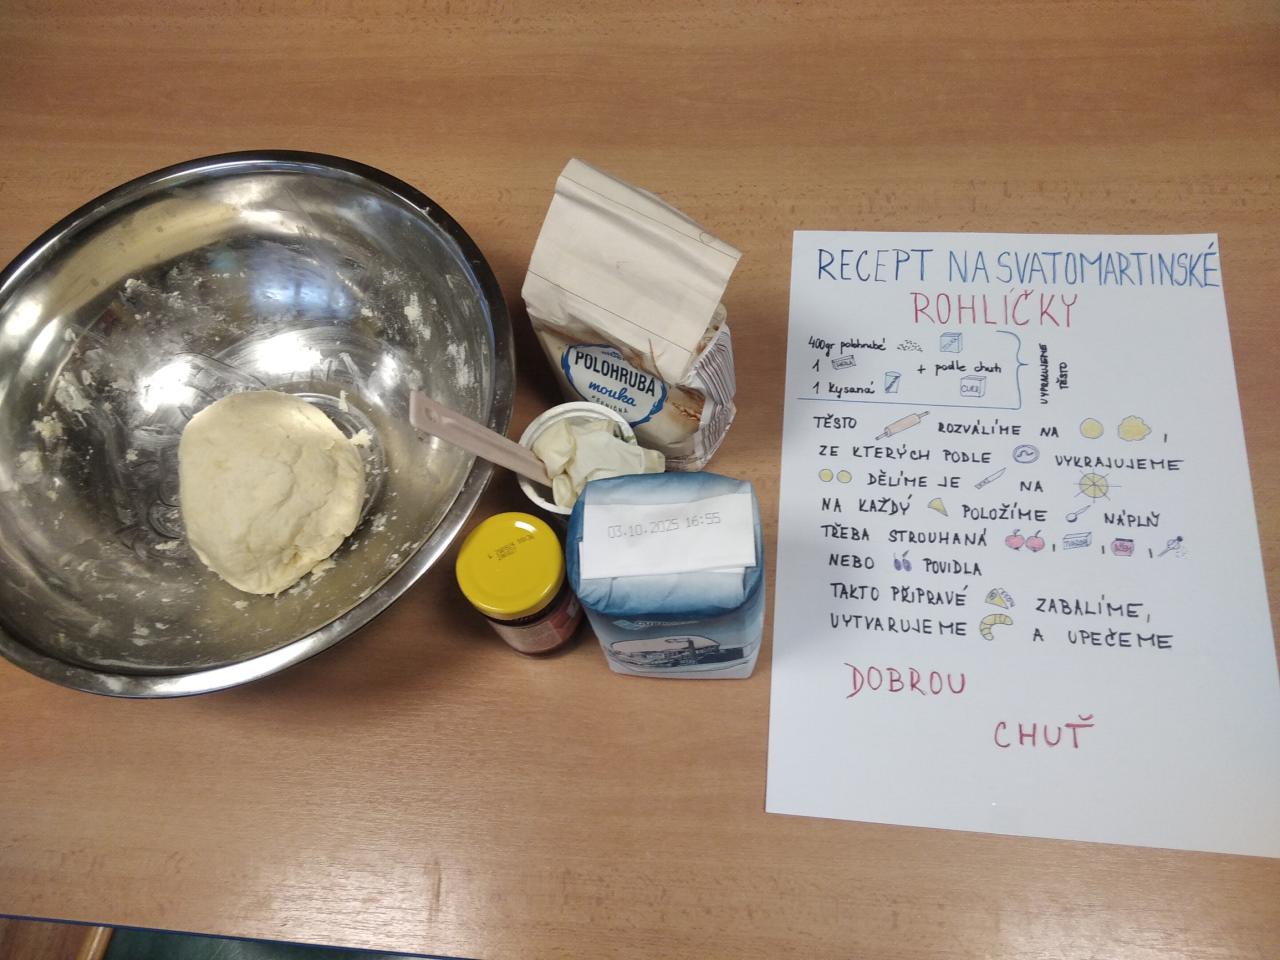 POLOHRUBÁ
mouka
03.10.2025 16:55
RECEPT NA SVATOMARTINSKÉ
ROHLÍČKY
400gr polohrubé
1
+ podle chuti
1 Kysaná
CUKR
VYPRACUJEME
TĚSTO
TĚSTO ROZVÁLÍME NA ,
ZE KTERÝCH PODLE VYKRAJUJEME
DĚLÍME JE NA
NA KAŽDÝ POLOŽÍME NÁPLŇ
TŘEBA STROUHANÁ , , ,
NEBO POVIDLA
TAKTO PŘIPRAVÉ ZABALÍME,
VYTVARUJEME A UPEČEME
DOBROU
CHUŤ